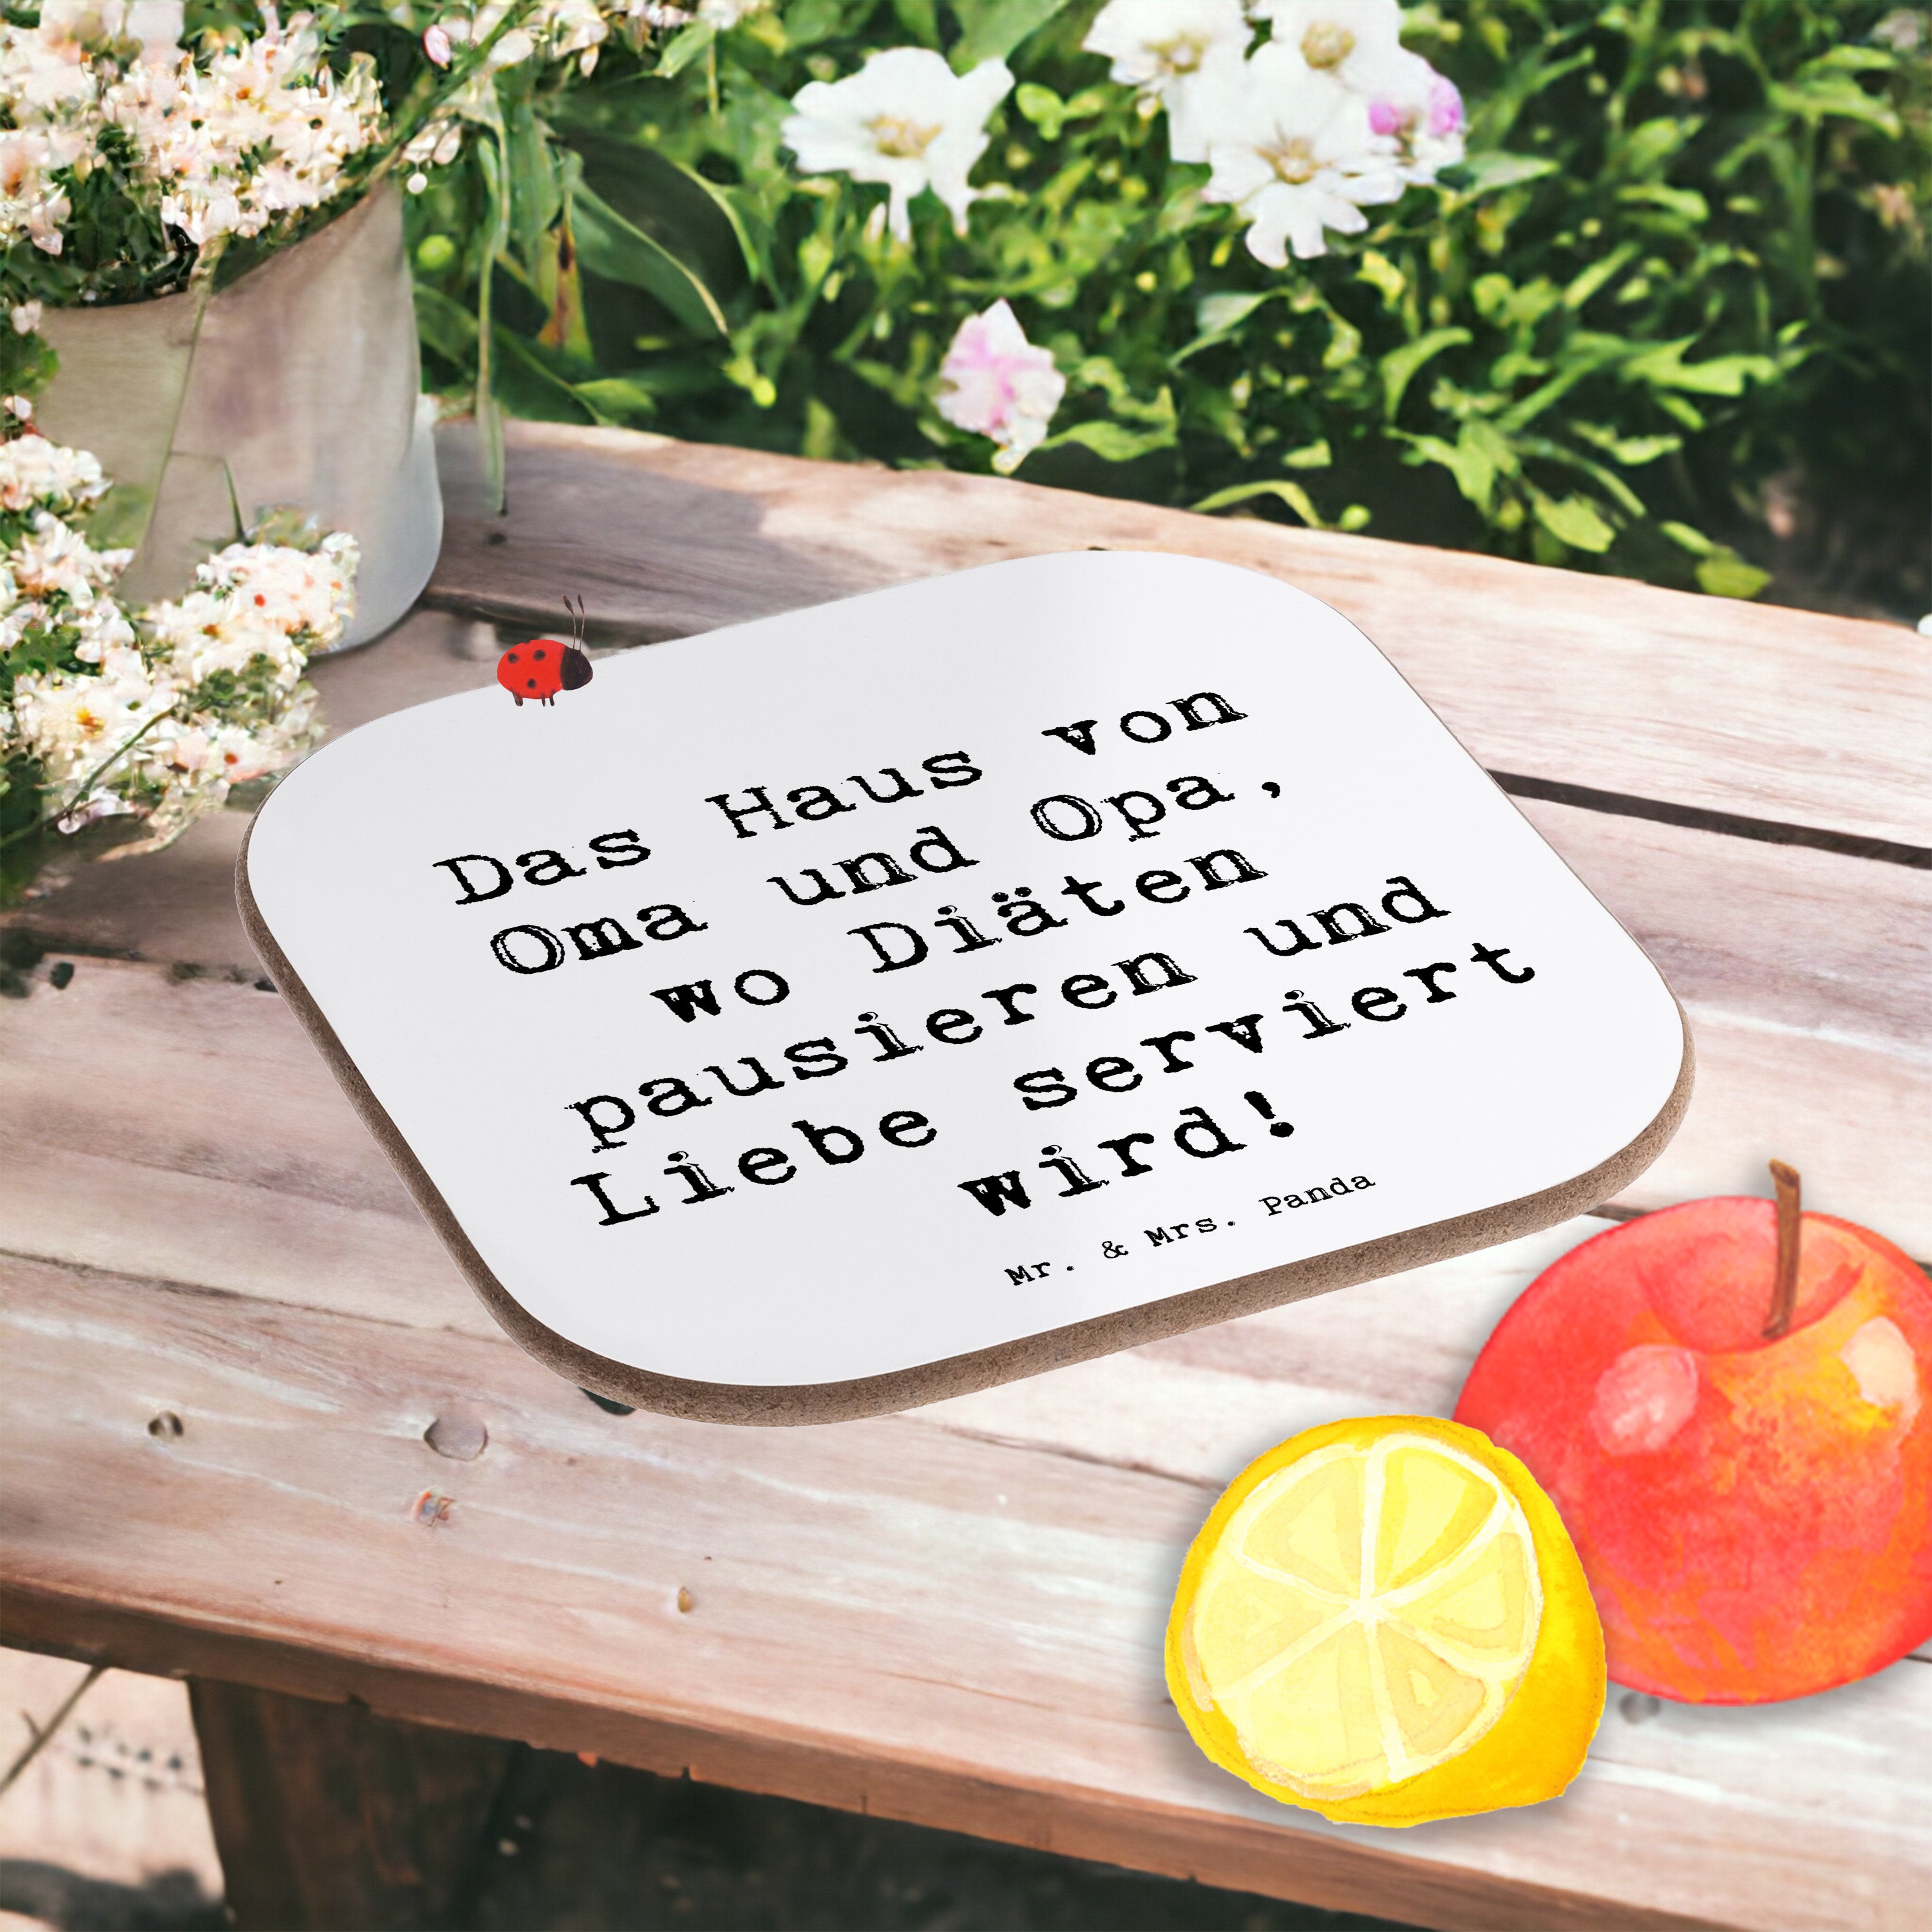 Das Haus von
Oma und Opa,
wo Diäten
pausieren und
Liebe serviert
wird!
Mr. & Mrs. Panda